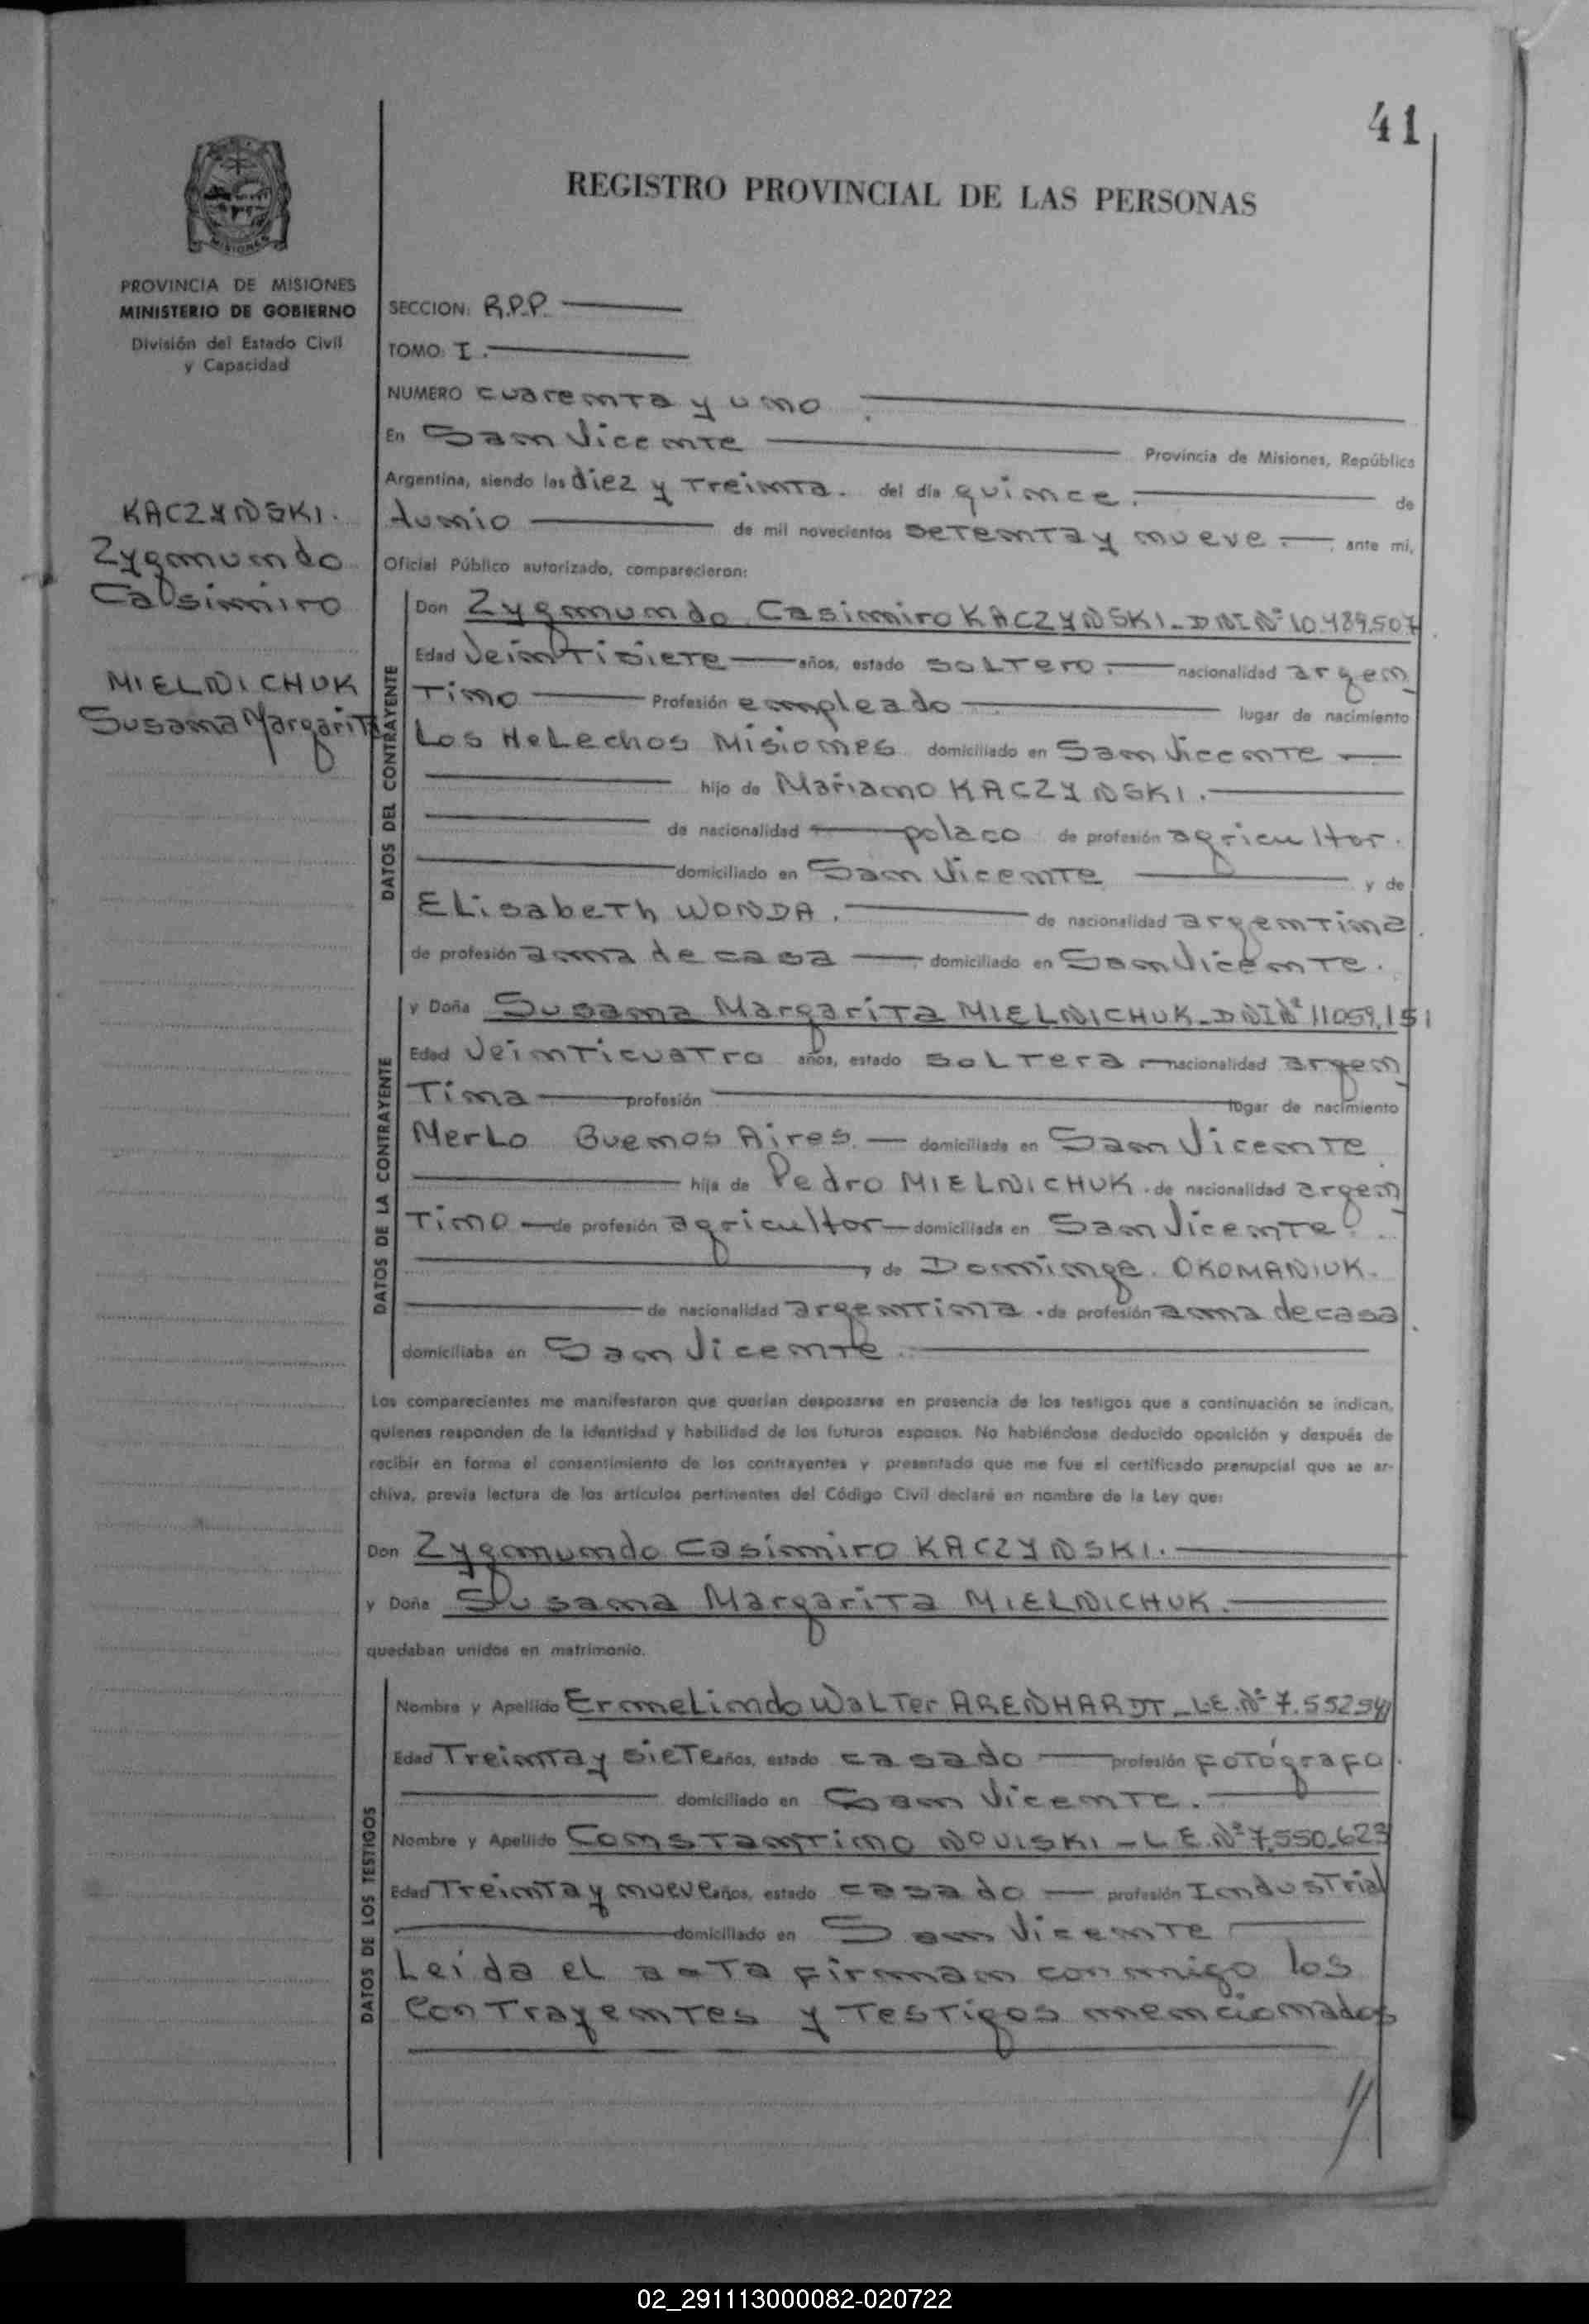 41
REGISTRO PROVINCIAL DE LAS PERSONAS
MISIONES
PROVINCIA DE MISIONES
MINISTERIO DE GOBIERNO
División del Estado Civil
y Capacidad
KACZYNSKI.
Zygmundo
Casimiro
MIELNICHUK
Susana Margarita
SECCION: R.P.P.
TOMO: I.
NUMERO cuarenta y uno.
En San Vicente Provincia de Misiones, República
Argentina, siendo las diez y Treinta. del día quince. de
Junio de mil novecientos setenta y nueve. ante mí,
Oficial Público autorizado, comparecieron:
DATOS DEL CONTRAYENTE
Don Zygmundo Casimiro KACZYNSKI - DNI Nº 10.489.507
Edad Veintisiete años, estado soltero. nacionalidad argen
Tino Profesión empleado lugar de nacimiento
Los Helechos Misiones domiciliado en San Vicente
hijo de Mariano KACZYNSKI.
de nacionalidad polaco de profesión agricultor.
domiciliado en San Vicente y de
Elisabeth WONDA. de nacionalidad argentina.
de profesión ama de casa domiciliado en San Vicente.
DATOS DE LA CONTRAYENTE
y Doña Susana Margarita MIELNICHUK - DNI Nº 11059.151
Edad Veinticuatro años, estado soltera nacionalidad argen
Tina profesión lugar de nacimiento
Merlo Buenos Aires. domiciliada en San Vicente
hija de Pedro MIELNICHUK. de nacionalidad argen
Tino de profesión agricultor domiciliada en San Vicente.
y de Dominga OKOMANIUK.
de nacionalidad argentina. de profesión ama de casa
domiciliaba en San Vicente.
Los comparecientes me manifestaron que querían desposarse en presencia de los testigos que a continuación se indican,
quienes responden de la identidad y habilidad de los futuros esposos. No habiéndose deducido oposición y después de
recibir en forma el consentimiento de los contrayentes y presentado que me fue el certificado prenupcial que se ar-
chiva, previa lectura de los artículos pertinentes del Código Civil declaré en nombre de la Ley que:
Don Zygmundo Casimiro KACZYNSKI.
y Doña Susana Margarita MIELNICHUK.
quedaban unidos en matrimonio.
DATOS DE LOS TESTIGOS
Nombre y Apellido Ermelindo Walter ARENHARDT - L.E. Nº
Edad Treinta y siete años, estado casado profesión fotógrafo.
domiciliado en San Vicente.
Nombre y Apellido Constantino NOVISKI - L.E. Nº 7.550.623
Edad Treinta y nueve años, estado casado profesión Industrial
domiciliado en San Vicente
Leída el acta firman conmigo los
Contrayentes y Testigos mencionados
//
02_291113000082-020722